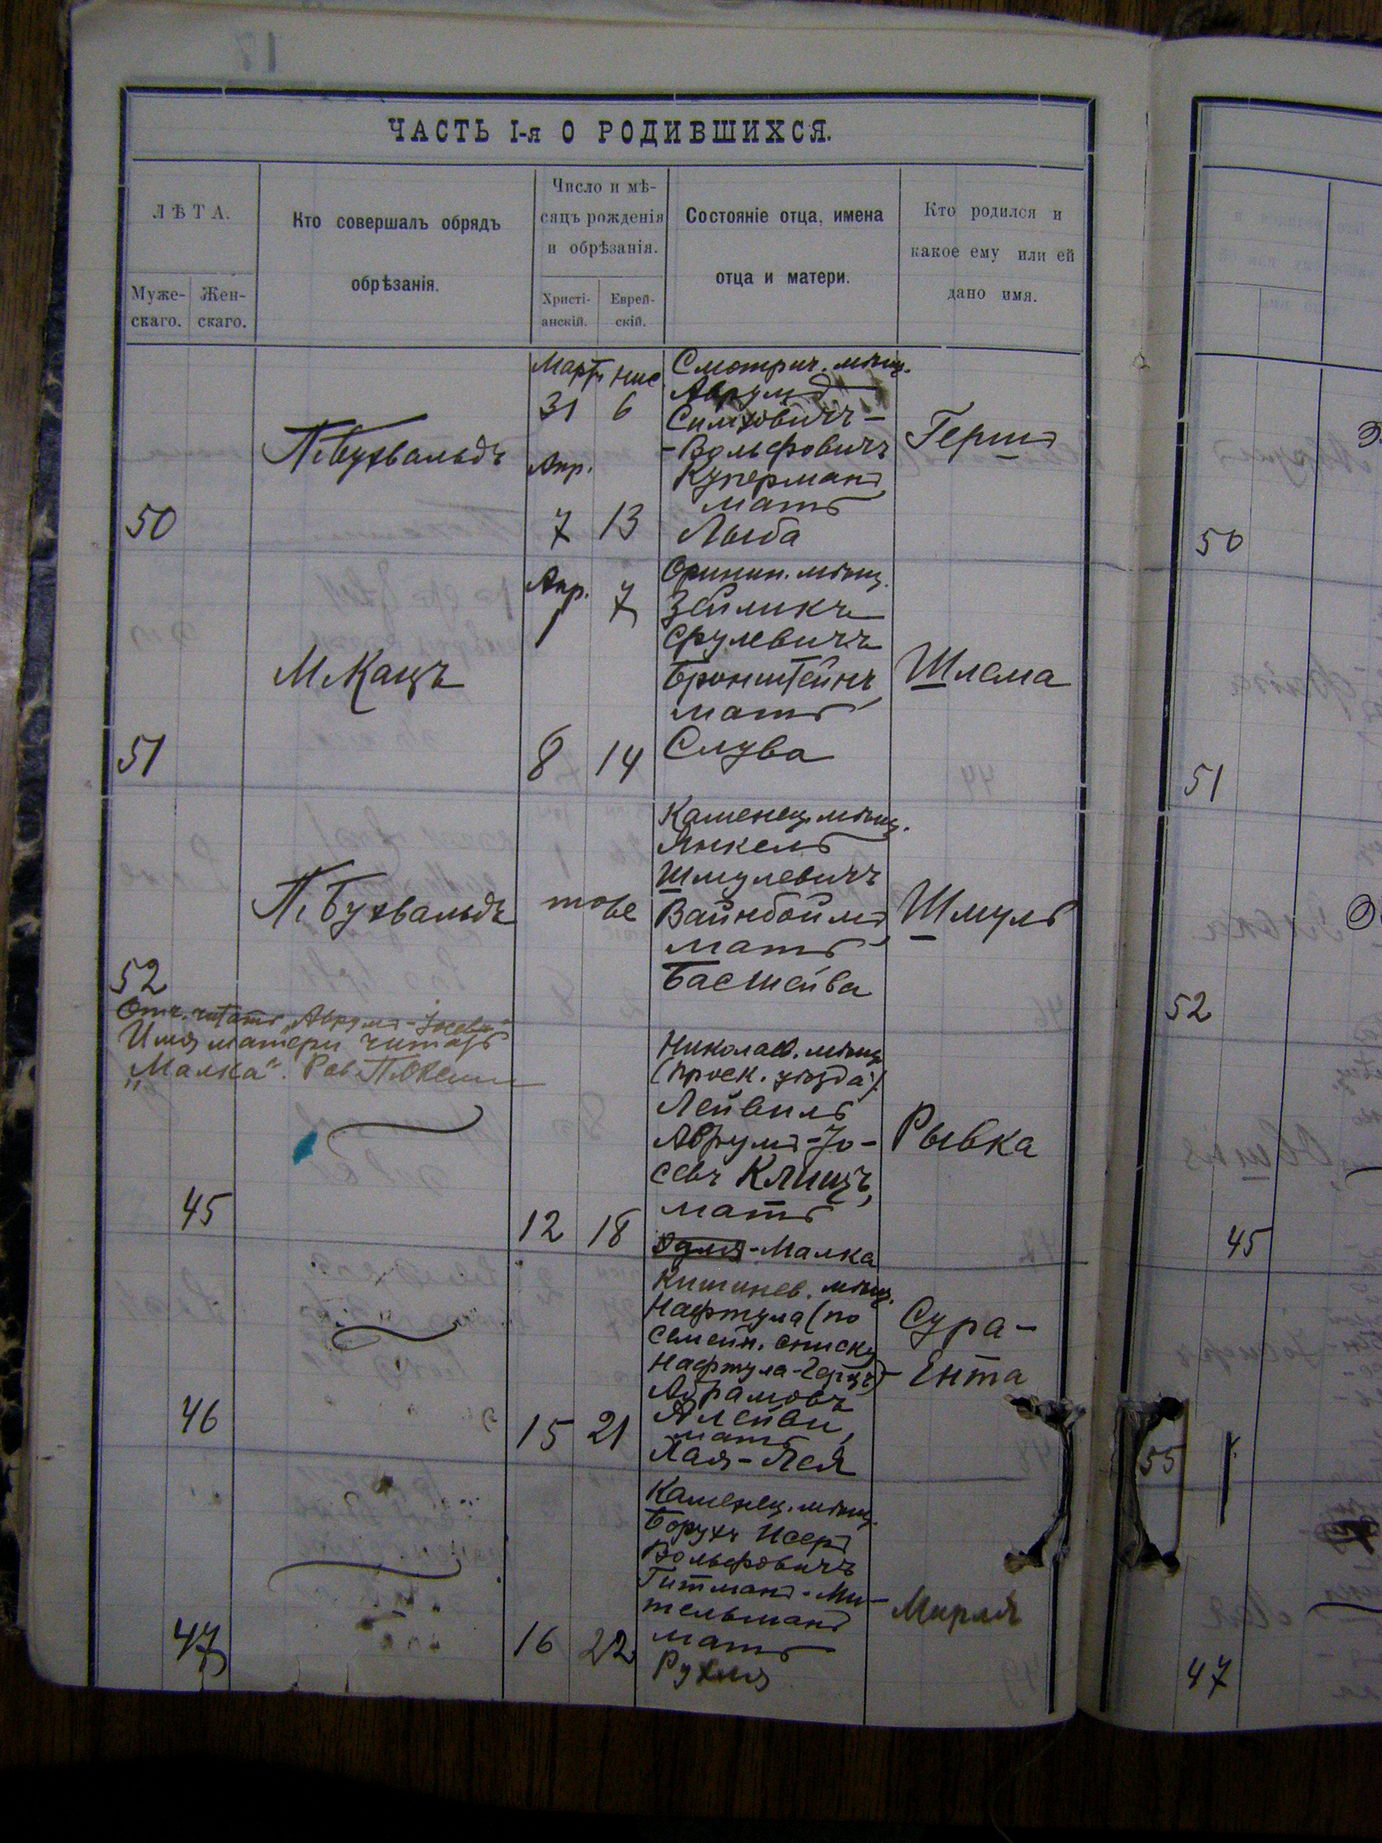 17
ЧАСТЬ I-я О РОДИВШИХСЯ.
ЛѢТА.
Муже-
скаго.
Жен-
скаго.
Кто совершалъ обрядъ
обрѣзанія.
Число и мѣ-
сяцъ рожденія
и обрѣзанія.
Христі-
анскій.
Еврей-
скій.
Состояніе отца, имена
отца и матери.
Кто родился и
какое ему или ей
дано имя.
50
П. Бухвальдъ
Март. Нис.
31 6
Апр.
7 13
Смотрич. мѣщ.
Аврумъ
Симховичъ-
-Вольфовичъ
Куперманъ
мать
Лыба
Гершъ
51
М. Кацъ
Апр.
1 7
8 14
Оринин. мѣщ.
Зейликъ
Срулевичъ
Бронштейнъ,
мать
Слува
Шлема
52
П. Бухвальдъ
тоже
Каменец. мѣщ.
Янкель
Шмулевичъ
Вайнбоймъ,
мать
Басшейва
Шмуль
Отч. читать „Аврумъ-Іосевъ“
Имя матери читать
„Малка“. Рав
45
12 18
Николаев. мѣщ.
(Проск. уѣзда)
Лейвиль
Аврумъ-Іо-
севъ Клищъ,
мать
Эдля-Малка
Рывка
46
15 21
Кишинев. мѣщ.
Нафтула (по
семейн. списку
Нафтула-Герцъ)
Абрамовъ
Алейви,
мать
Хая-Лея
Сура-
Ента
47
16 22
Каменец. мѣщ.
Борухъ Исеръ
Вольфовичъ
Гитманъ-Ми-
тельманъ
мать
Рухля
Мирля
50
51
52
45
55
47